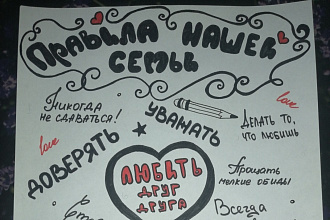 Правила нашей
семьи
Никогда
не сдаваться!
уважать
love
Делать то,
что любишь
love
доверять
Любить
друг
друга
Прощать
мелкие обиды
Всегда